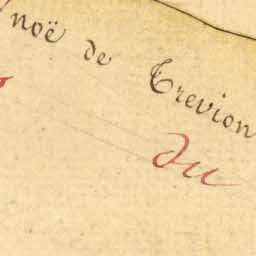 noë de Trevion
Du